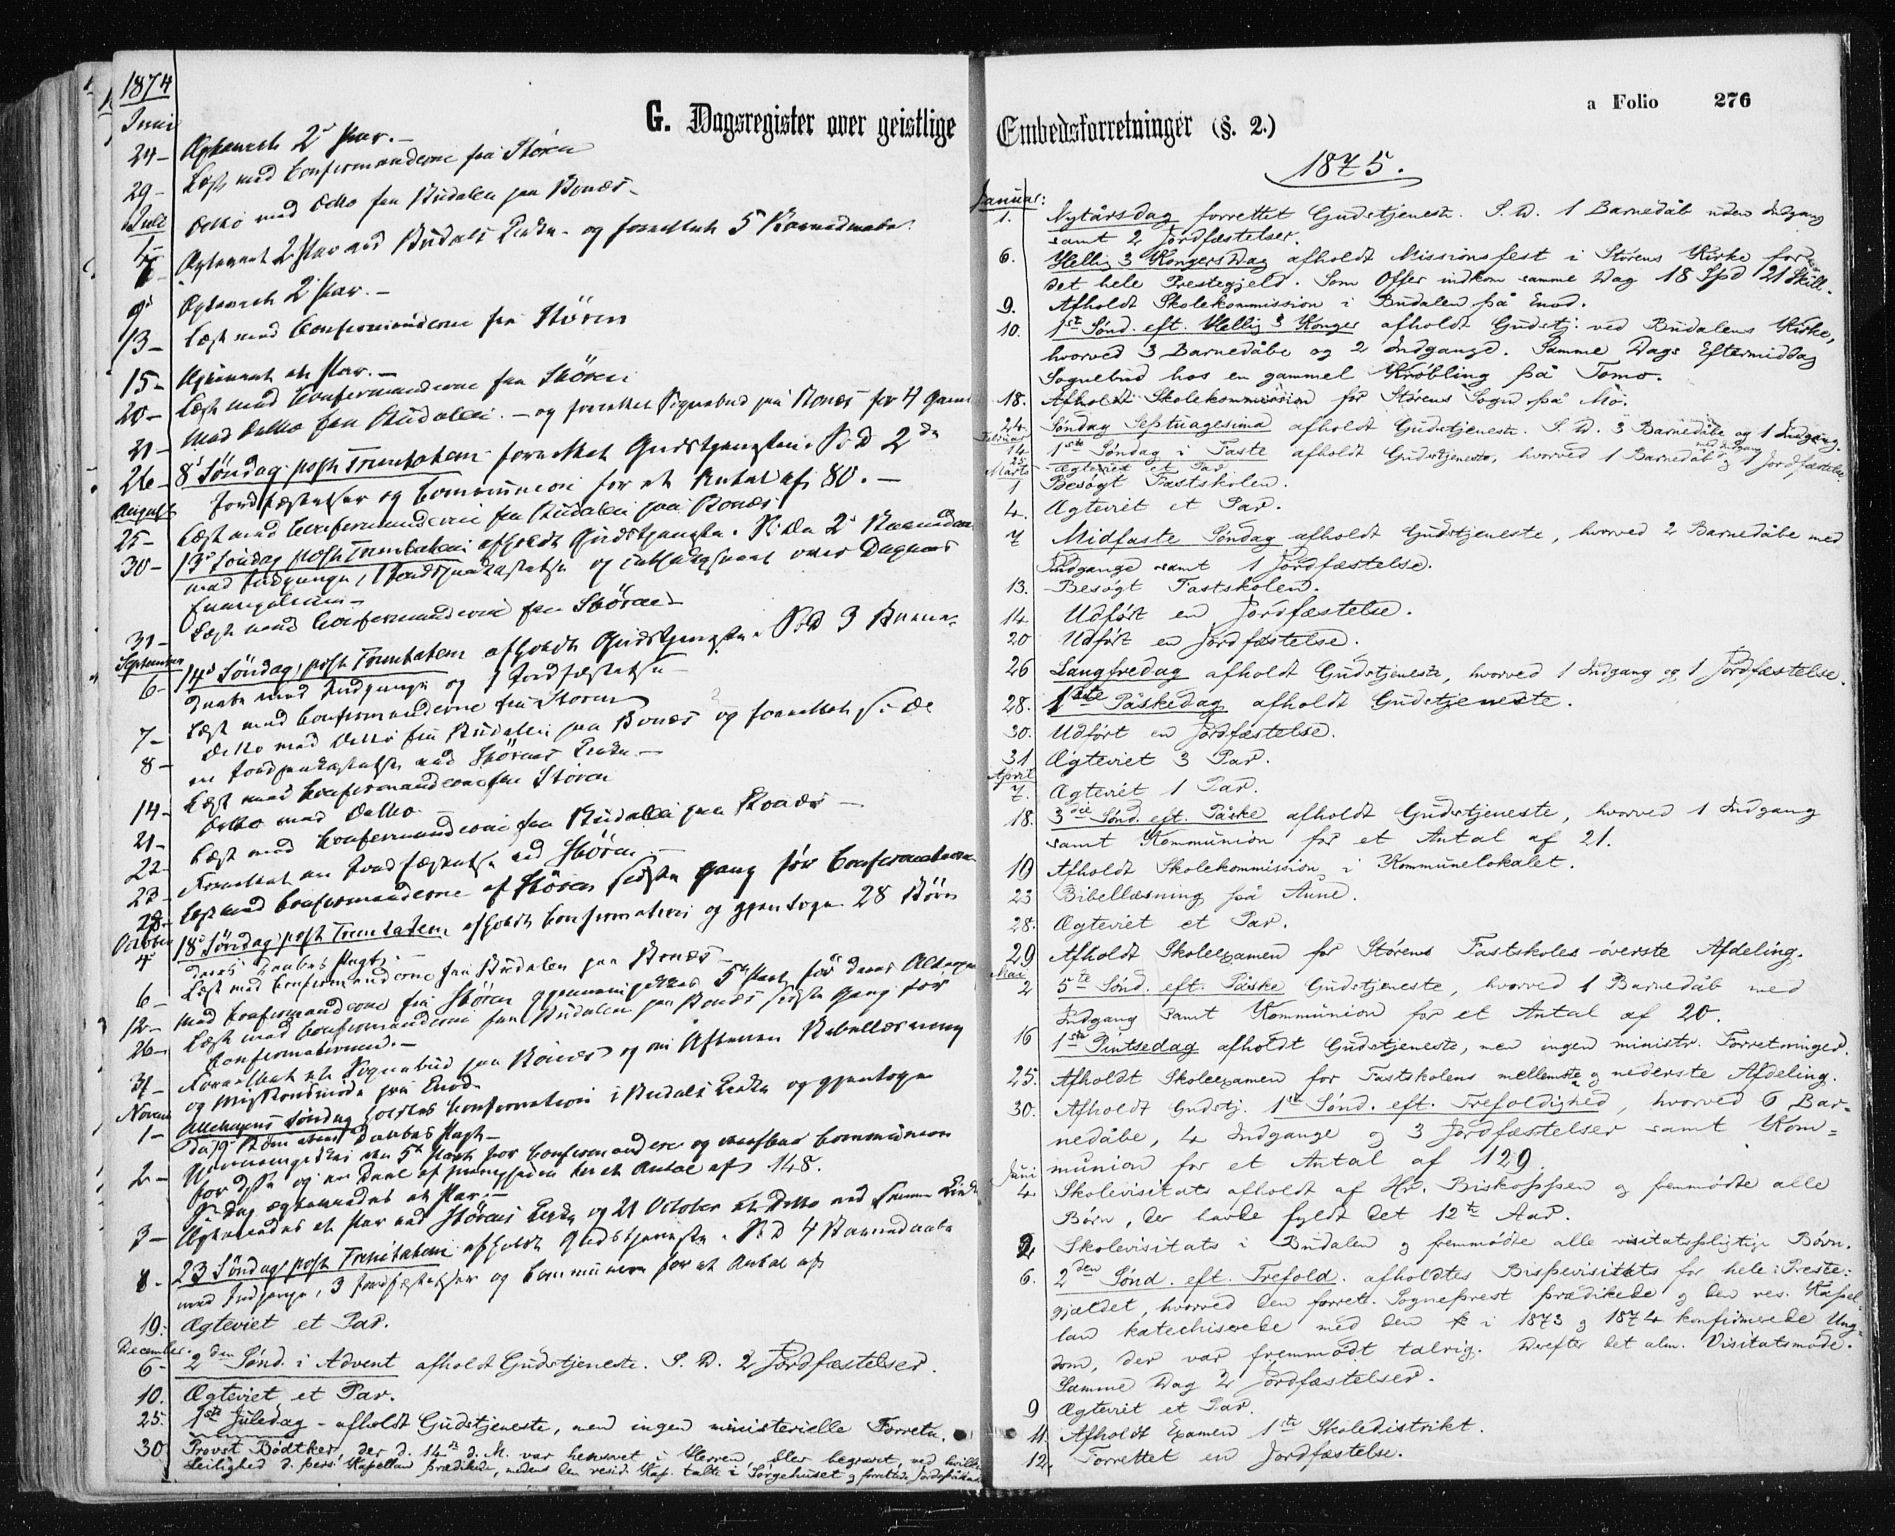 1874
G. Dagsregister over geistlige
Juni
24- Ægteviet 2 Par.-
29- Læst med Confirmanderne fra Stören
Juli
Ditto med Ditto fra Budalen paa Bonæs-
7- Ægteviet 2 Par ved Budals Kirke - og forrettet 5 Barnedaabe
9 Ægteviet 2 Par.-
13- Læst med Confirmanderne fra Stören
15- Ægteviet et Par.-
20- Læst med Confirmanderne fra Stören
21- Med Ditto fra Budalen.- og forrettet Sognebud paa Bonæs for 4 Gamle
26- 8 Søndag post Trinitatem forrettet Gudstjenesten. S. D. 2
Jordfæstelser og Communion for et Antal af 80.-
August
25- Læst med Confirmanderne fra Budalen paa Bonæs
30- 13 Søndag post Trinitatem afholdt Gudstjeneste. S. D. 2 Barnedaabe
med Indgange, 1 Jordpaakastelse og over Dagens
Evangelium-
31- Læst med Confirmanderne fra Stören-
September
6- 14 Søndag post Trinitatem afholdt Gudstjeneste. S. D. 3 Barne-
daabe med Indgange og 1 Jordfæstelse
7- Læst med Confirmanderne fra Stören
8- Ditto med Ditto fra Budalen paa Bonæs og forrettet S. D.
en Jordpaakastelse ved Störens Kirke.-
14- Læst med Confirmanderne fra Stören
21- Ditto med Ditto
22- Læst med Confirmanderne fra Budalen paa Bonæs-
23- Forrettet en Jordfæstelse ved Stören.-
28- Læst med Confirmanderne af Stören sidste Gang för Confirmationen
October
4 18 Søndag post Trinitatem afholdt Confirmation og gjentoge 28 Börn
deres Daabes Pagt.-
6- Læst med Confirmanderne fra Budalen paa Bonæs-
12- Med Confirmanderne fra Stören gjennemgikkes 5 Part för deres Altergang
26- Læst med Confirmanderne fra Budalen paa Bonæs sidste Gang för
Confirmationen.-
31- Forrettet et Sognebud paa Bonæs og om Aftenen Bibellæsning
og Missionsmøde paa Enod-
Novem
1- Allehelgens Söndag holdtes Confirmation i Budals Kirke og gjentoge
19 Börn deres Daabes Pagt-
2- Gjennemgikkes den 5 Part for Confirmanderne og derefter Communion
for disse og en Deel af Menigheden til et Antal af 148.
S. Dag ægteviedes et Par.-
3- Ægteviedes et Par ved Störens Kirke og 21 October et Ditto ved samme Kirke
8- 23 Søndag post Trinitatem afholdt Gudstjeneste. S. D. 4 Barnedaabe
med Indgange, 3 Jordfæstelser og Communion for et Antal af
19. Ægteviet et Par.
December.
6- 2den Sønd. i Advent afholdt Gudstjeneste. S. D. 2 Jordfæstelser.
10. Ægteviet et Par.
25. 1ste Juledag - afholdt Gudstjeneste, men ingen ministerielle Forretn.
30. Provst Bödtker, der d. 14de d. M. var hensovet i Herren, blev begravet, ved hvilken
Leilighed d. pers. Kapellan prædikede, medens den resid. Kap. talte i Sørgehuset og forrettede Jordpåkast.
a Folio 276
Embedsforretninger (§. 2.)
1875.
Januar:
1. Nytårsdag forrettet Gudstjeneste. S. D. 1 Barnedåb uden Indgang
samt 2 Jordfæstelser.
6. Hellig 3 Kongers Dag afholdt Missionsfest i Störens Kirke for
det hele Prestegjeld. Som Offer indkom samme Dag 18 Spd 21 Skill.
9. Afholdt Skolekommission i Budalen på Enod.
10. 1ste Sønd. eft. Hellig 3 Konger afholdt Gudstj. ved Budalens Kirke,
hvorved 3 Barnedåbe og 2 Indgange. Samme Dags Eftermiddag
Sognebud hos en gammel Kröbling på Tomo.
18. Afholdt Skolekommission for Störens Sogn på Mo.
24. Søndag Septuagesima afholdt Gudstjeneste. S. D. 3 Barnedåbe og 1 Indgang.
Februar
14. 1ste Søndag i Faste afholdt Gudstjeneste, hvorved 1 Barnedåb med Indgang og 1 Jordfæstelse.
23. Ægteviet et Par.
Marts
1 Besögt Fastskolen.
4. Ægteviet et Par.
7 Midfaste Søndag afholdt Gudstjeneste, hvorved 2 Barnedåbe med
Indgange samt 1 Jordfæstelse.
13. Besögt Fastskolen.
14. Udfört en Jordfæstelse.
20 Udfört en Jordfæstelse.
26 Langfredag afholdt Gudstjeneste, hvorved 1 Indgang og 1 Jordfæstelse.
28. 1ste Påskedag afholdt Gudstjeneste.
30. Udfört en Jordfæstelse.
31 Ægteviet 3 Par.
April
7. Ægteviet 1 Par.
18. 3die Sønd. eft. Påske afholdt Gudstjeneste, hvorved 1 Indgang
samt Kommunion for et Antal af 21.
19 Afholdt Skolekommission i Kommunelokalet.
23 Bibellæsning på Aune.
28. Ægteviet et Par.
29 Afholdt Skoleexamen for Störens Fastskoles överste Afdeling.
Mai
2 5te Sønd. eft. Påske Gudstjeneste, hvorved 1 Barnedåb med
Indgang samt Kommunion for et Antal af 20.
16 1ste Pintsedag afholdt Gudstjeneste, men ingen ministr. Forretninger.
25. Afholdt Skoleexamen for Fastskolens mellemste og nederste Afdeling.
30. Afholdt Gudstj. 1ste Sønd. eft. Trefoldighed, hvorved 6 Bar=
nedåbe, 4 Indgange og 3 Jordfæstelser samt Kom=
munion for et Antal af 129.
Juni
4. Skolevisitats afholdt af Hr. Biskoppen og fremmødte alle
Börn, der havde fyldt det 12te Aar.
Skolevisitats i Budalen og fremmødte alle visitatspligtige Börn.
6. 2den Sønd. eft. Trefold. afholdtes Bispevisitats for hele Preste=
gjældet, hvorved den forrett. Sogneprest prædikede og den res. Kapel=
lan katechiserede med den i 1873 og 1874 konfirmerede Ung=
dom, der var fremmødt talrig. Derefter det alm. Visitatsmøde.
Samme Dag 2 Jordfæstelser.
9 Ægteviet et Par.
11. Afholdt Examen 1ste Skoledistrikt.
12. Forrettet en Jordfæstelse.